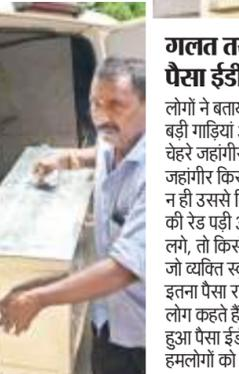 गलत त
पैसा ईडी
लोगों ने बताय
बड़ी गाड़ियां
चेहरे जहांगीर
जहांगीर किस
न ही उससे
की रेड पड़ी
लगे, तो किस
जो व्यक्ति स्
इतना पैसा र
लोग कहते हैं
हुआ पैसा ईड
हमलोगों को